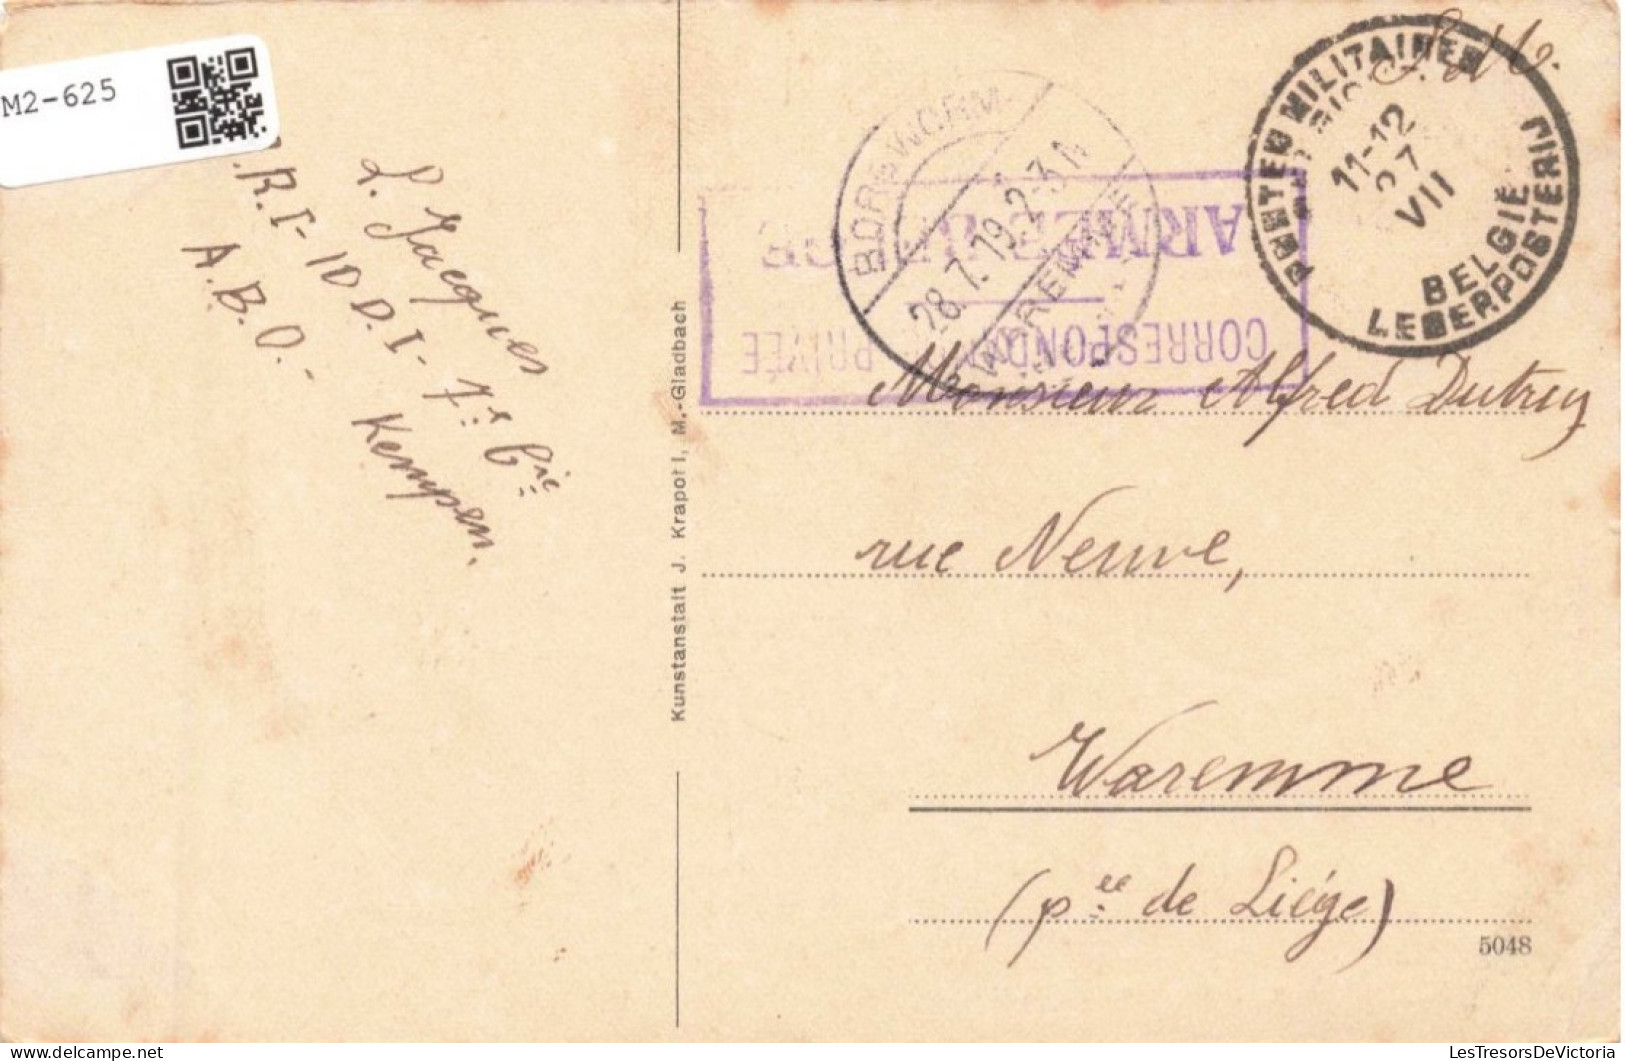 M2-625
S. M.
POSTES MILITAIRES
BELGIQUE
11-12
27
VII
BELGIË
LEGERPOSTERIJ
BORGWORM
28.7.19.2-3 N
WAREMME
ARMÉE BELGE
CORRESPONDANCE PRIVÉE
L. Jacques
.R.I- 10 D.I- 7.e Cie
A.B.O.- Kempen.
Kunstanstalt J. Krapohl, M.-Gladbach
Monsieur Alfred Dutruy
rue Neuve,
Waremme
(p.ce de Liége)
5048
LesTresorsDeVictoria